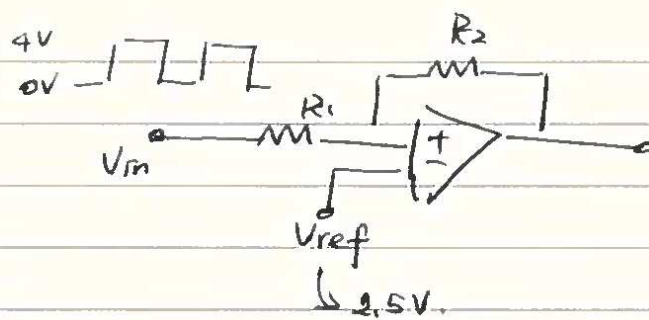 4V
0V
R2
R1
Vin
+
−
Vref
2.5V.